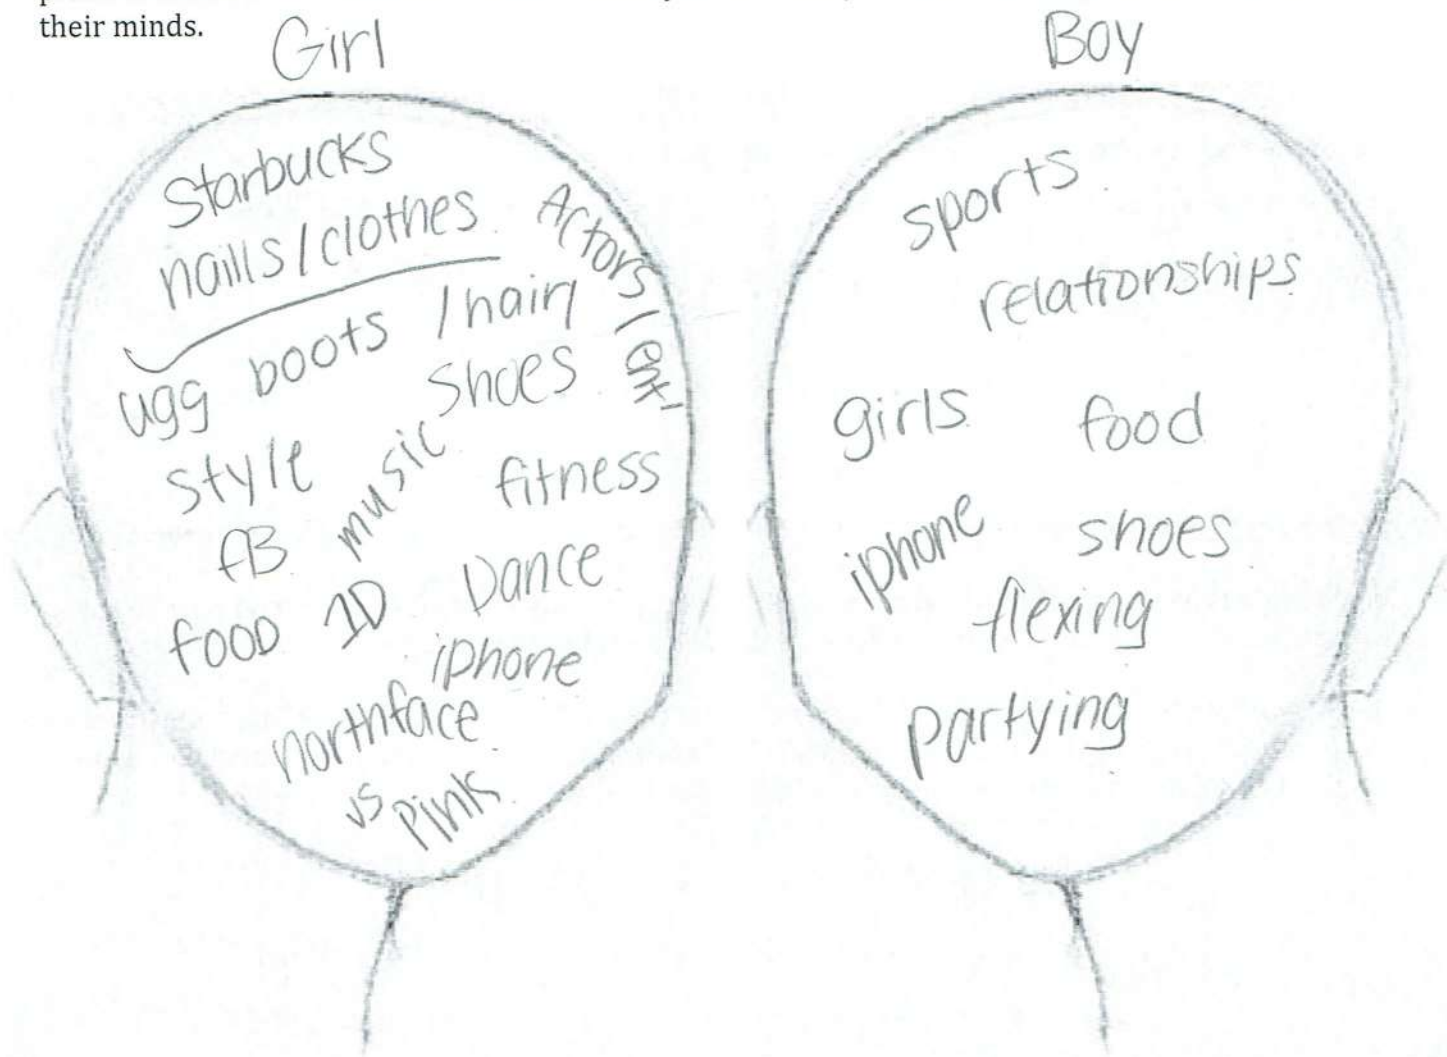 their minds.
Girl
Starbucks
naills/clothes
/hair
Actors/ent'
ugg boots
shoes
style
music
fitness
FB
Dance
food
1D
iphone
northface
vs Pink
Boy
sports
relationships
girls
food
iphone
shoes
flexing
partying